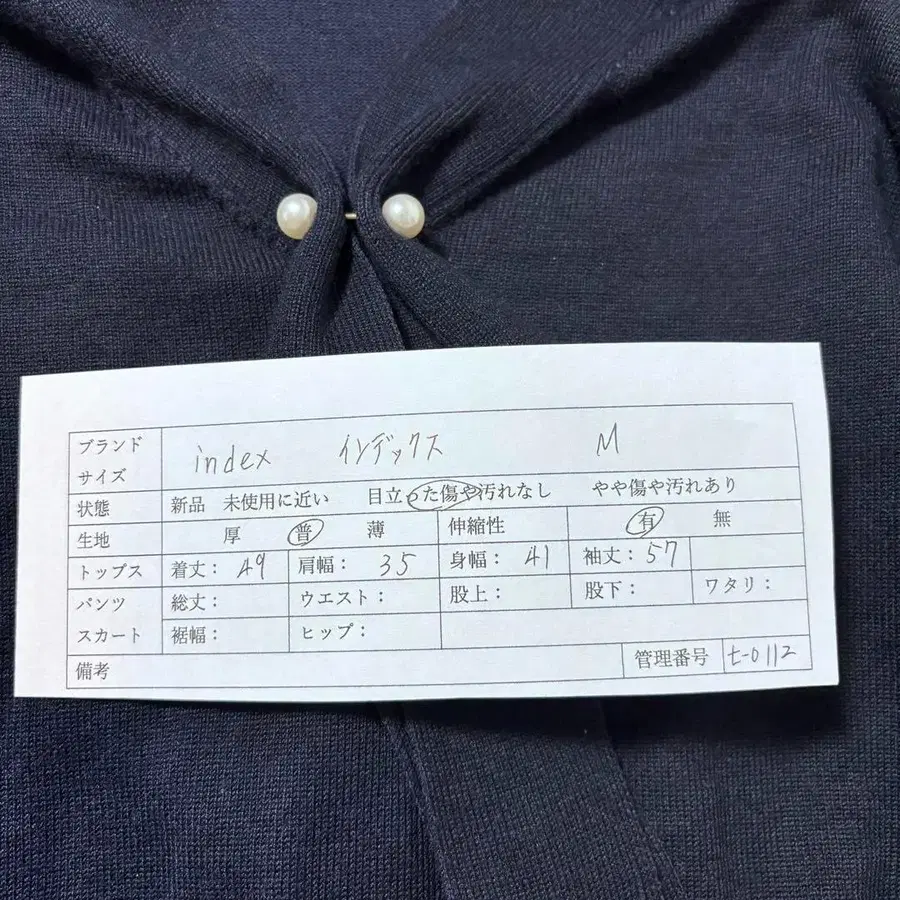 ブランド
サイズ
index インデックス M
状態 新品 未使用に近い 目立った傷や汚れなし やや傷や汚れあり
生地 厚 普 薄 伸縮性 有 無
トップス 着丈: 49 肩幅: 35 身幅: 41 袖丈: 57
パンツ 総丈: ウエスト: 股上: 股下: ワタリ:
スカート 裾幅: ヒップ:
備考 管理番号 t-0112